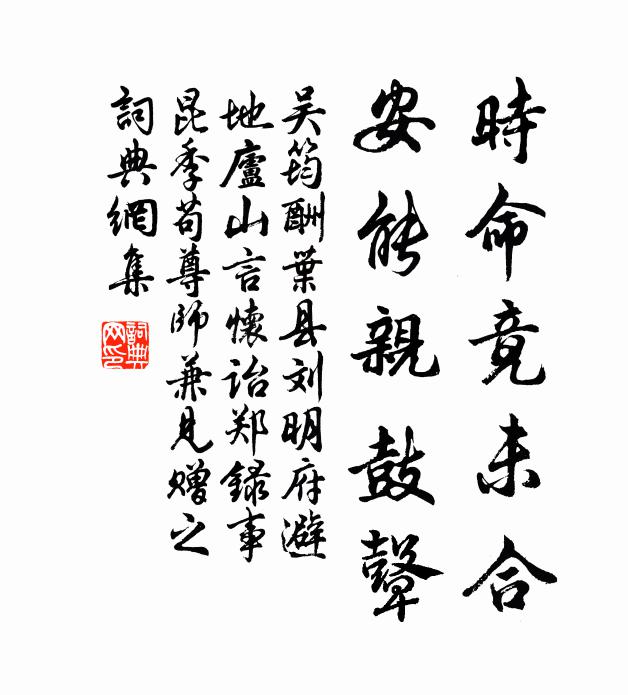 時命竟未合
安能親鼓鼙
吴筠酬葉县刘明府避
地廬山言懷诒郑録事
昆季苟尊师兼见赠之
詞典網集
詞典網印